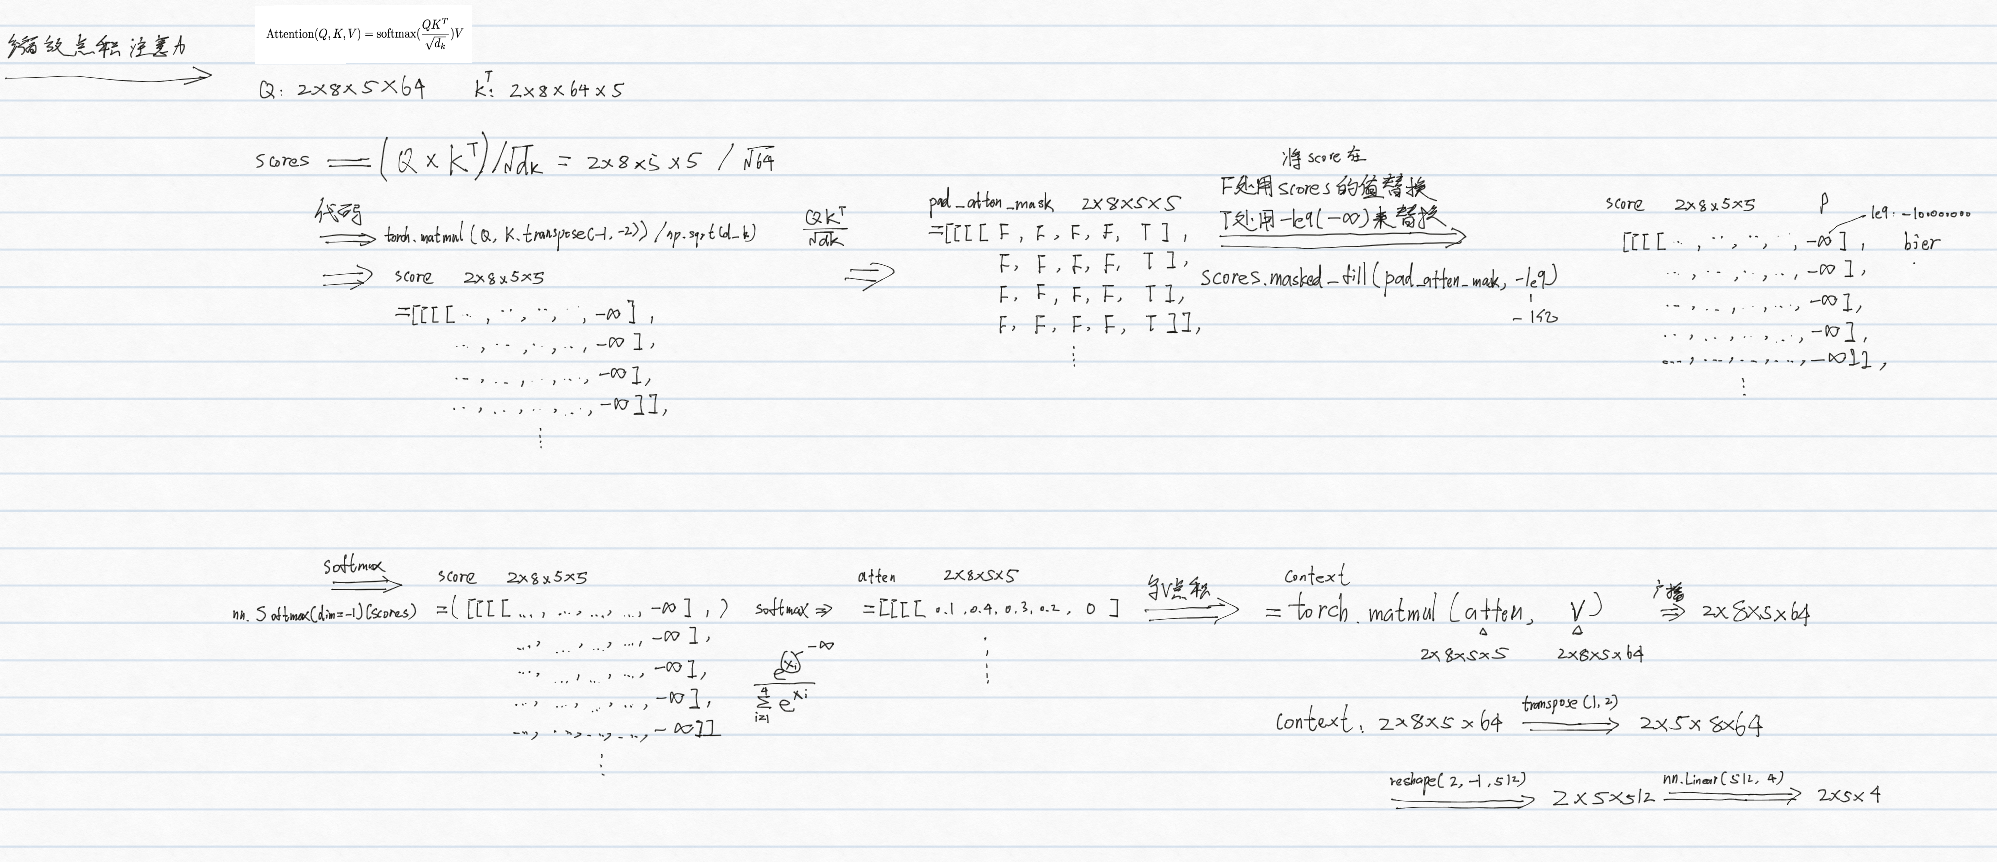 Attention(Q, K, V) = softmax(QK^T/√d_k)V
缩放点积注意力
Q: 2×8×5×64   K^T: 2×8×64×5
scores = (Q × K^T)/√dk = 2×8×5×5 / √64
代码
torch.matmul(Q, K.transpose(-1, -2)) / np.sqrt(d_k)
score 2×8×5×5
=[[[[ .., .., .., .., -∞],
.., .., .., .., -∞],
.., .., .., .., -∞],
.., .., .., .., -∞]],
⋮
QK^T/√dk
pad_atten_mask 2×8×5×5
=[[[[ F, F, F, F, T],
F, F, F, F, T],
F, F, F, F, T],
F, F, F, F, T]],
⋮
将score在
F处用scores的值替换
T处用-1e9(-∞)来替换
scores.masked_fill(pad_atten_mask, -1e9)
score 2×8×5×5
[[[[ .., .., .., .., -∞],
.., .., .., .., -∞],
.., .., .., .., -∞],
.., .., .., .., -∞],
..., ..., ..., ..., -∞]],
⋮
softmax
nn.Softmax(dim=-1)(scores)
score 2×8×5×5
=([[[[ ..., ..., ..., ..., -∞],)
..., ..., ..., ..., -∞],
..., ..., ..., ..., -∞],
..., ..., ..., ..., -∞],
..., ..., ..., ..., -∞]]
⋮
softmax ⇒
e^(xi) -∞
Σ i=1 4 e^xi
atten 2×8×5×5
=[[[[ 0.1, 0.4, 0.3, 0.2, 0 ]
⋮
与V点积
context
= torch.matmul(atten, V)
2×8×5×5   2×8×5×64
广播
⇒ 2×8×5×64
context: 2×8×5×64 transpose(1,2) 2×5×8×64
reshape(2, -1, 512) 2×5×512 nn.Linear(512, 4) 2×5×4